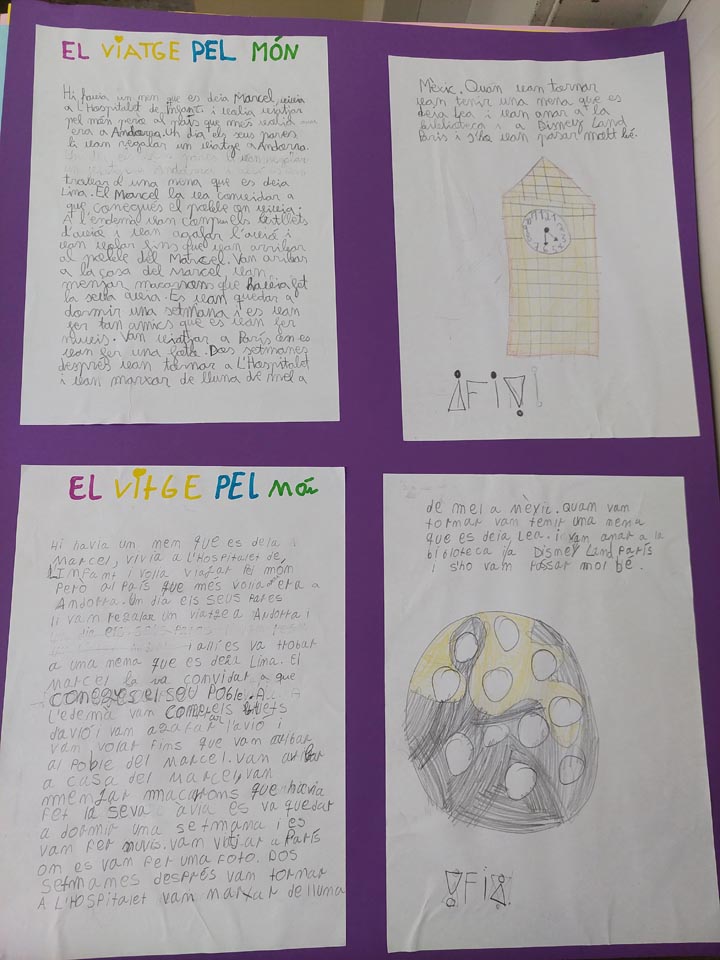 EL VIATGE PEL MÓN
Hi havia un nen que es deia Marcel, vivia
a L'Hospitalet de L'Infant. i volia viatjar
pel món però al país que més volia anar
era a Andorra. Un dia els seus pares
li van regalar un viatge a Andorra.
trobar a una nena que es deia
Lina. El Marcel la va convidar a
que conegués el poble on vivia.
A l'endemà van comprar els bitllets
d'avió i van agafar l'avió i
van volar fins que van arribar
al poble del Marcel. Van arribar
a la casa del Marcel van
menjar macarrons que havia fet
la seva àvia. Es van quedar a
dormir una setmana i es van
fer tan amics que es van fer
nuvis. Van viatjar a París on es
van fer una foto. Dos setmanes
després van tornar a L'Hospitalet
i van marxar de lluna de mel a
Mèxic. Quan van tornar
van tenir una nena que es
deia Lea i van anar a la
biblioteca i a Disney Land
París i s'ho van pasar molt bé.
¡FIN!
EL VITGE PEL MÓN
Hi havia un nen que es deia
Marcel, vivia a L'Hospitalet de
L'INFAnt i volia viatjar pel món
Però al País que més volia era a
Andorra. Un dia els seus pares
li van regalar un viatge a Andorra i
i allí es va trobar
a una nena que es deia Lina. El
Marcel la va convidar a que
conegés el seu Poble. A
L'edemà van comprels bitllets
d'avió i van agafar l'avió i
van volar fins que van arribar
al Poble del Marcel. van arribar
a casa del Marcel, van
menjar macarons que havia
fet la seva àvia es va quedar
a dormir una setmana i es
van fer nuvis. van viatjar a París
on es van fer una foto. DOS
setmanes després van tornar
A L'HOSPitalet van marxar de lluna
de mel a Mèxic. Quan van
tornar van tenir una nena
que es deia, Lea. i van anar a la
biblioteca i a Disney Land París
i s'ho van passar mol bé.
¡FIN!